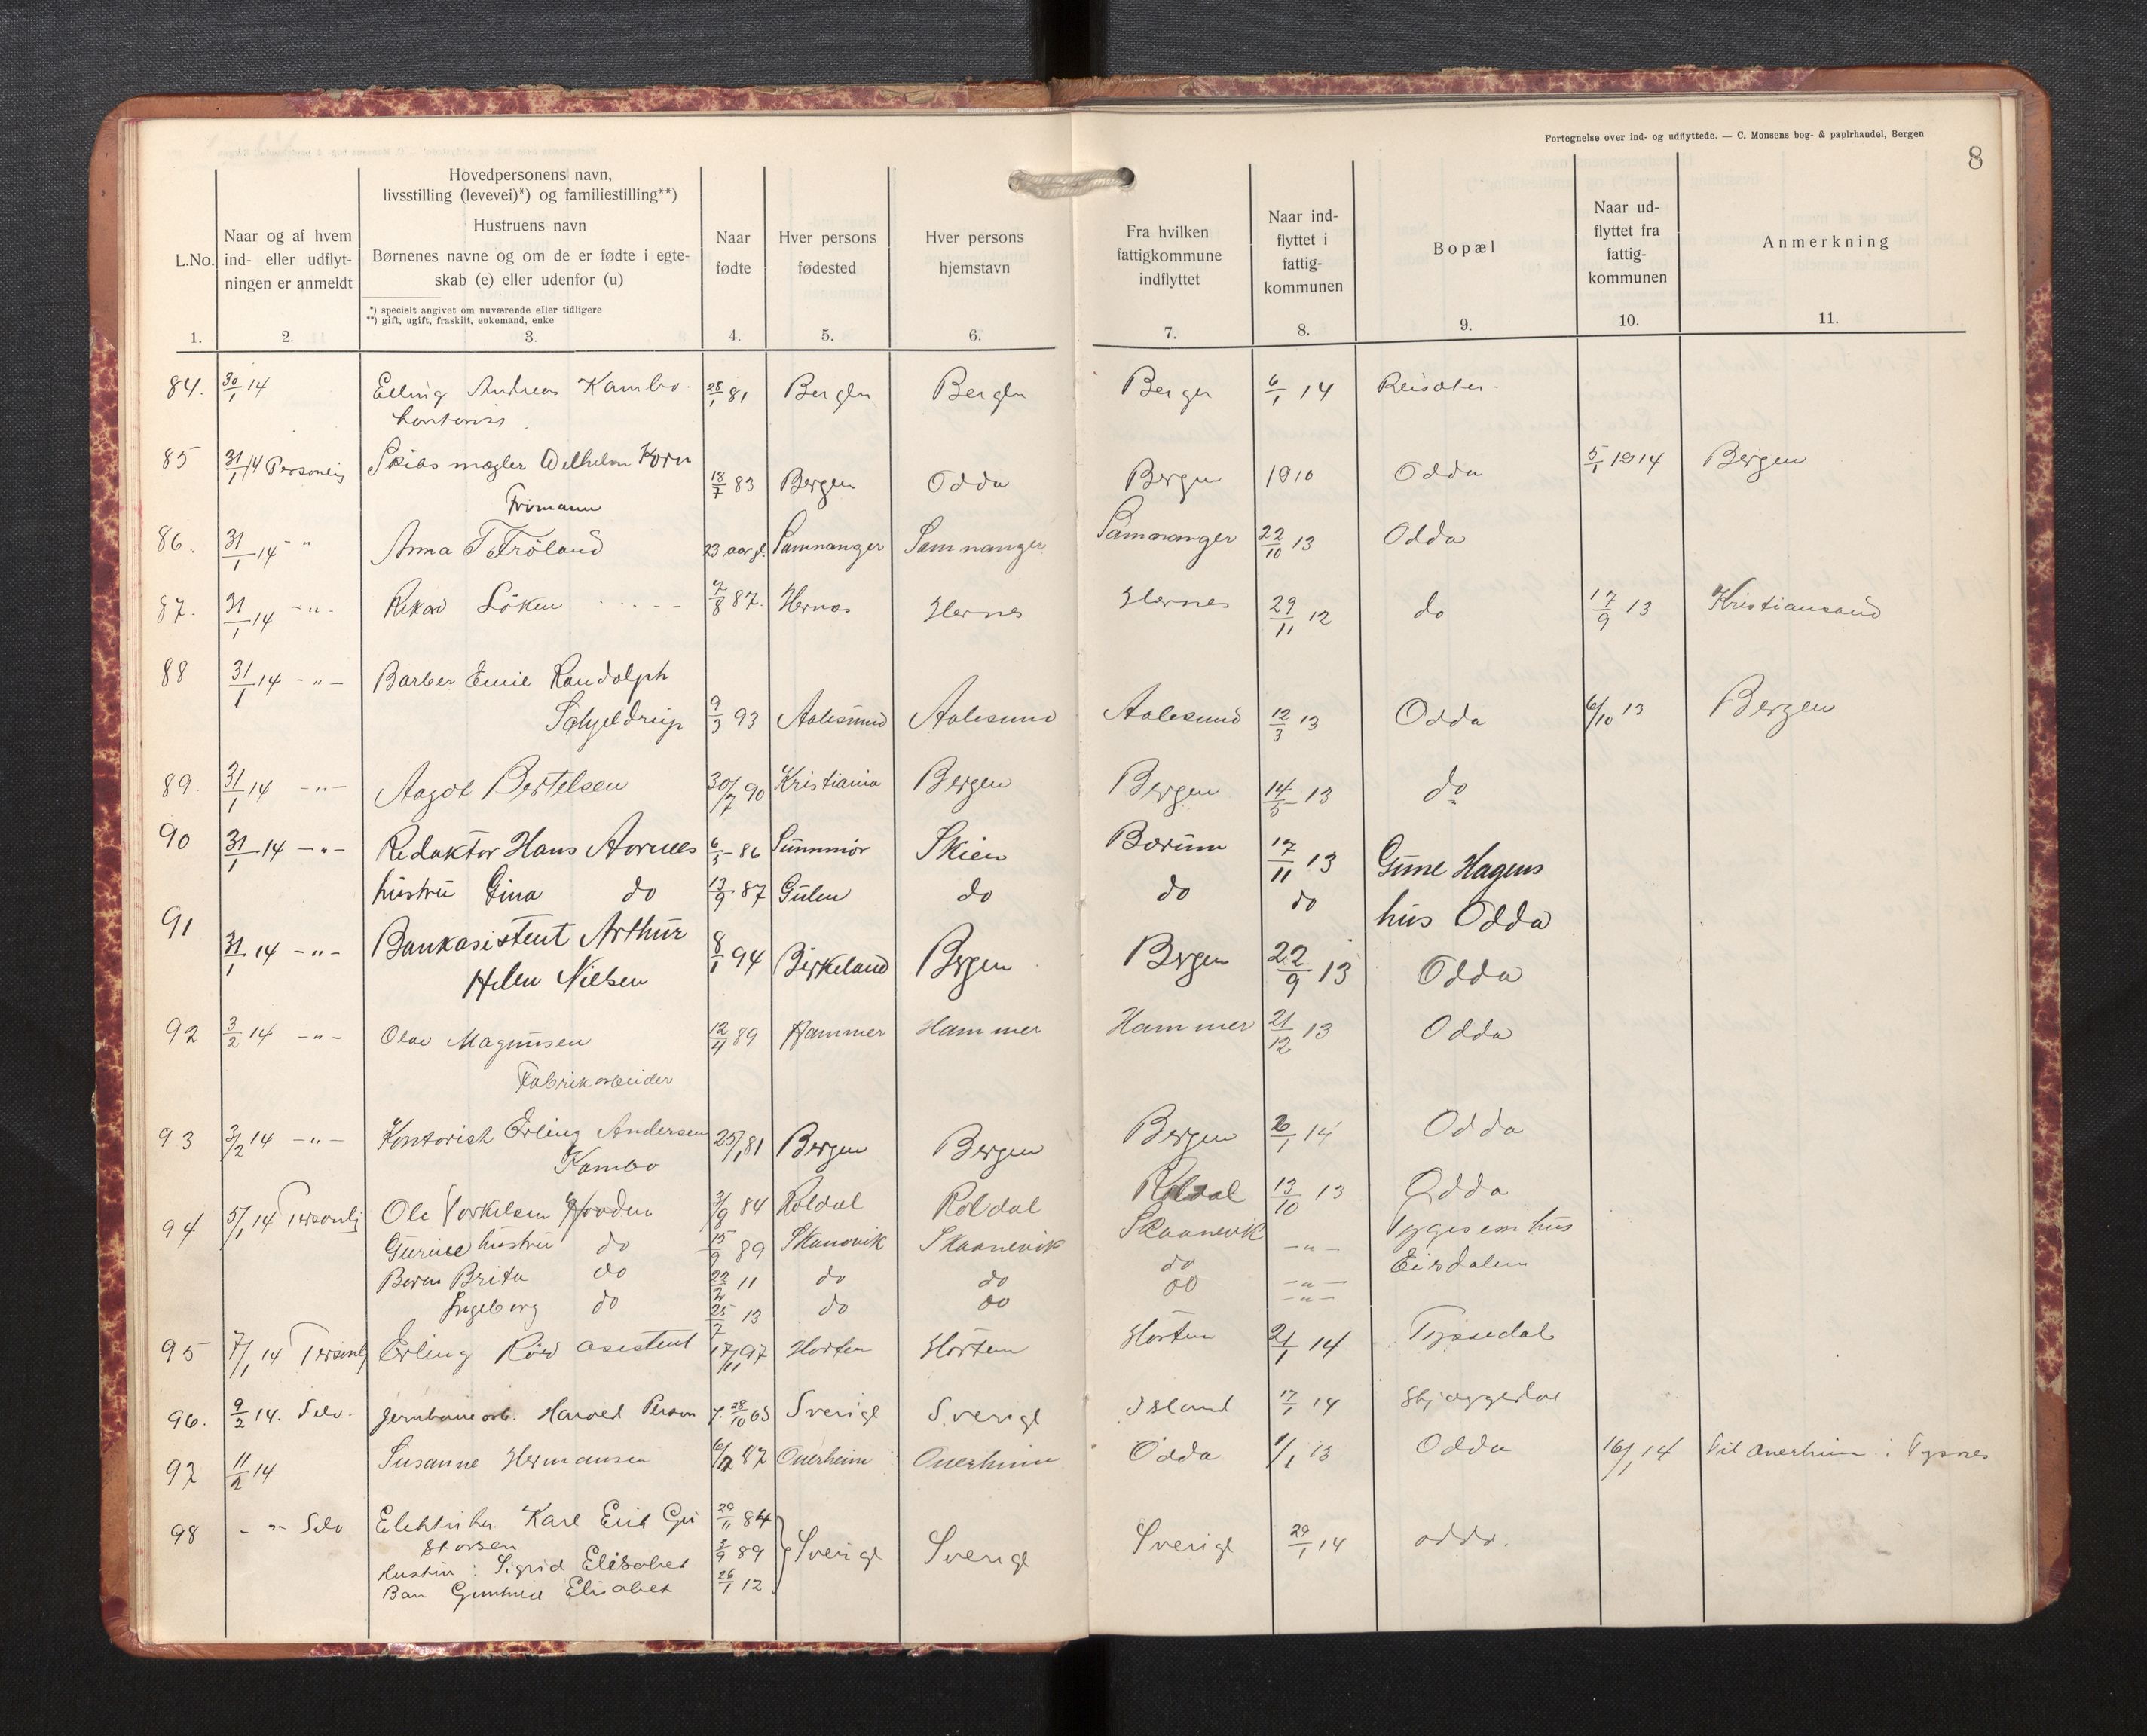 Fortegnelse over ind- og udflyttede. — C. Monsens bog- & papirhandel, Bergen
8
L.No.
1.
Naar og af hvem
ind- eller udflyt-
ningen er anmeldt
2.
Hovedpersonens navn,
livsstilling (levevei)*) og familiestilling**)
Hustruens navn
Børnenes navne og om de er fødte i egte-
skab (e) eller udenfor (u)
*) specielt angivet om nuværende eller tidligere
**) gift, ugift, fraskilt, enkemand, enke
3.
Naar
fødte
4.
Hver persons
fødested
5.
Hver persons
hjemstavn
6.
Fra hvilken
fattigkommune
indflyttet
7.
Naar ind-
flyttet i
fattig-
kommunen
8.
Bopæl
9.
Naar ud-
flyttet fra
fattig-
kommunen
10.
Anmerkning
11.
84. 30/1 14 Elling Andreas Kambo 25/1 81 Bergen Bergen Bergen 6/1 14
85 31/1 14 Personlig Skibsmægler Wilhelm Korn 5/1 1914 Bergen
Frimann 18/7 83 Bergen Odda Bergen 1910 Odda
86. 31/1 14 -"- Anna T Fröland 23 aar gl. Samnanger Samnanger Samnanger 22/10 13 Odda
87. 31/1 14 -"- Rikard Löken 7/8 87. Hernes Hernes Hernes 29/11 12 do 17/9 13 Kristiansand
88 31/1 14 -"- Barber Emil Randolph
Schjeldrup 9/3 93 Aalesund Aalesund Aalesund 12/3 13 Odda 6/10 13 Bergen
89. 31/1 14 -"- Aagot Bertelsen 30/7 90 Kristiania Bergen Bergen 14/5 13 do
90 31/1 14 -"- Redaktor Hans Aarnes 6/5 86 Sunnmör Skien Bærum 17/11 13 Gune Hagens
hustru Gina do 13/9 87 Gulen do do do hus Odda
91 31/1 14 -"- Bankasistent Arthur 8/1 94 Birkeland Bergen Bergen 22/9 13 Odda
Helen Nielsen
92 3/2 14 -"- Olav Magnusen 12/4 89 Hammer Hammer Hammer 21/12 13 Odda
Fabrikarbeider
93 3/2 14 -"- Kontorist Erling Andersen 25/1 81 Bergen Bergen Bergen 26/1 14 Odda
Kambo
94 5/1 14 Personlig Ole Torkelsen 3/8 84 Röldal Röldal Röldal 13/10 13 Odda
Gurine hustru do 15/9 89 Skanevik Skaanevik Skaanevik -"- hus
Barn Brita do 22/2 11 do do do -"- Eirdalen
Ingeborg do 25/7 13 do do do -"-
95 7/1 14 Personlig Erling asistent 17/11 97 Horten Horten Horten 21/1 14 Tyssedal
96. 9/2 14. Selv. Jernbanearb. Harald Person f. 28/10 63 Sverige Sverige Island 17/1 14
97 11/2 14 Susanne Hermansen 6/12 87 Onerheim Onerheim Odda 1/1 13 Odda 16/1 14 Til Onerheim i Tysnes
98 -"- Selv Elektriker Karl Erik 29/11 84 Sverige Sverige Sverige 29/1 14 odda.
Hustru: Sigrid Elisabet 3/9 89
Barn Elisabet 26/1 12